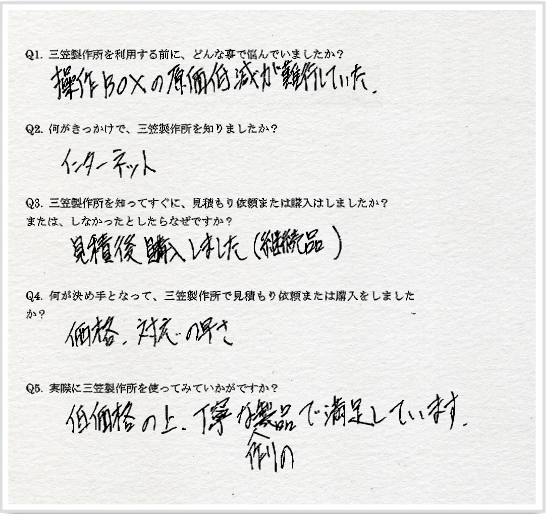 Q1. 三笠製作所を利用する前に、どんな事で悩んでいましたか？
操作BOXの原価低減が難行していた.
Q2. 何がきっかけで、三笠製作所を知りましたか？
インターネット
Q3. 三笠製作所を知ってすぐに、見積もり依頼または購入はしましたか？
または、しなかったとしたらなぜですか？
見積後購入しました（継続品）
Q4. 何が決め手となって、三笠製作所で見積もり依頼または購入をしました
か？
価格、対応の早さ
Q5. 実際に三笠製作所を使ってみていかがですか？
低価格の上、丁寧な製品で満足しています.
作りの